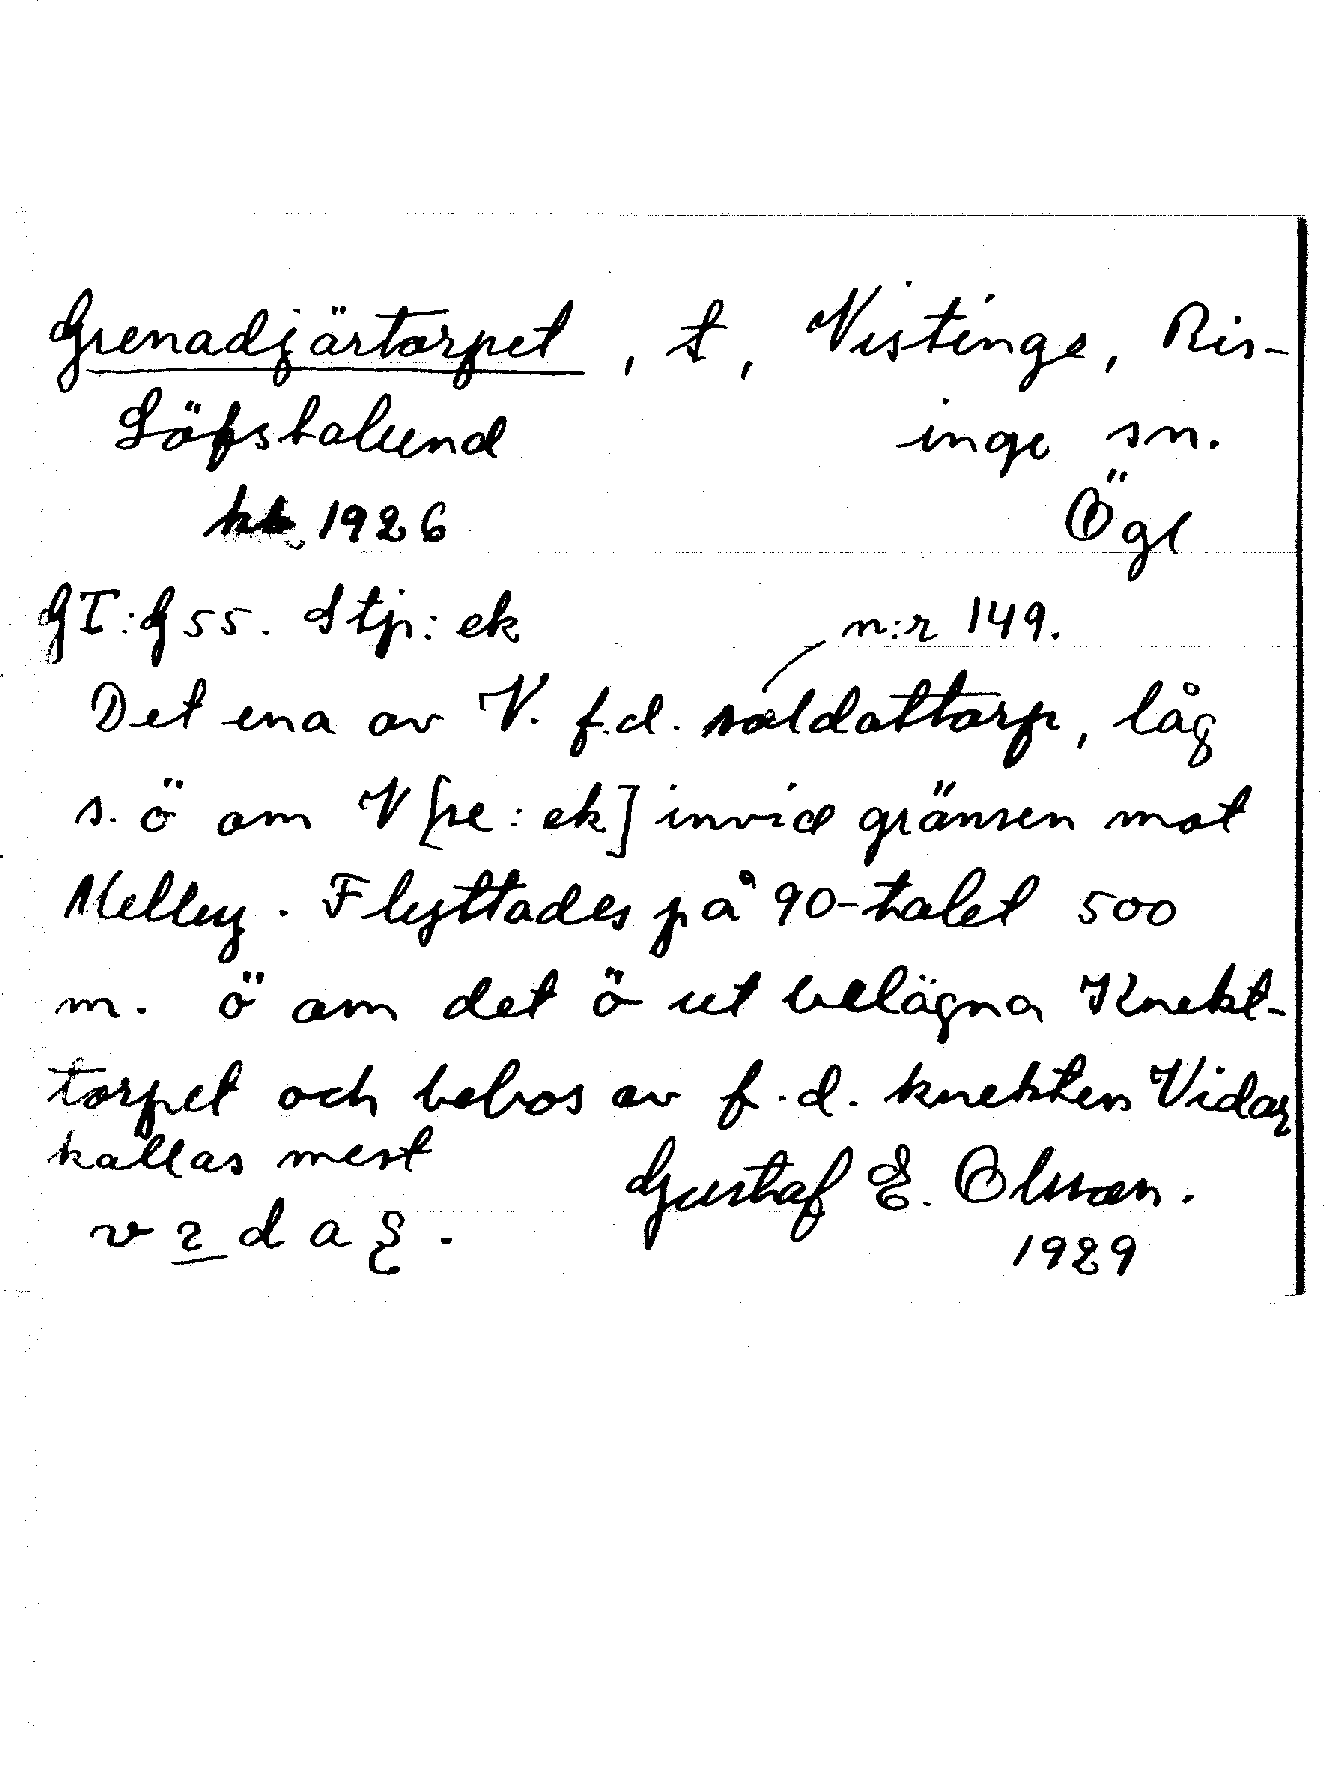 Grenadjärtorpet, t, Vistinge, Ris-
Löfstalund inge sn.
kk 1926 Ögl
GT: G55. Stp: ek n:r 149.
Det ena av V. f.d. soldattorp, låg
s. ö om V [pe: ek] invid gränsen mot
Melby. Flyttades på 90-talet 500
m. ö om det ö ut belägna Knekt-
torpet och bebos av f.d. knekten Vidar
kallas mest Gustaf E. Olsson.
v ɩ d a ʂ. 1929